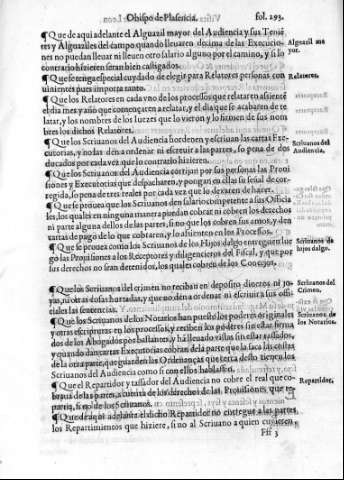 Obispo de Plasencia. fol. 293.
¶ Que de aqui adelante el Alguazil mayor del Audiencia y sus Tenië
tes y Alguaziles del campo quando lleuaren dezima de las Execucio-
nes no puedan lleuar ni lleuen otro salario alguno por el camino, y si lo
contrario hizieren seran bien castigados.
Alguazil ma
yor.
¶ Que se tenga especial cuydado de elegir para Relatores personas con
uinientes pues importa tanto.
Relatores.
¶ Que los Relatores en cada vno de los processos que relataren assienté
el dia mes y año que començaren a relatar, y el dia que se acabaren de re
latar, y los nombres de los Iuezes que lo vieron y lo firmen de sus nom
bres los dichos Relatores.
¶ Que los Scriuanos del Audiencia ordenen y escriuan las cartas Exe-
cutorias, y no las den a ordenar ni escreuir a las partes, so pena de dos
ducados por cada vez que lo contrario hizieren.
Scriuanos del
Audiencia.
¶ Que los Scriuanos del Audiencia corrijan por sus personas las Proui
siones y Executorias que despacharen, y pongan en ellas su señal de cor-
regido, so pena de tres reales por cada vez que lo dexaren de hazer.
¶ Que se prouea que los Scriuanos den salario competente a sus Officia
les, los quales en ninguna manera puedan cobrar ni cobren los derechos
ni parte alguna dellos de las partes, si no que los cobren sus amos, y den
cartas de pago de lo que cobraren, y lo assienten en los Processos.
¶ Que se prouea como los Scriuanos de los Hijos dalgo entreguen lue
go las Prouisiones a los Receptores y diligencieros del Fiscal, y que por
sus derechos no sean detenidos, los quales cobren de los Concejos.
Scriuanos de
hijos dalgo.
¶ Que los Scriuanos del crimen no reciban en deposito dineros ni jo-
yas, ni otras cosas hurtadas, y que no den a ordenar ni escriuir a sus offi
ciales las sentencias.
Scriuanos del
Crimen.
¶ Que los Scriuanos de los Notarios han puesto los poderes originales
y otras escripturas en los processos, y reciben los poderes sin estar firma
dos de los Abogados por bastantes, y ha lleuado vistas sin estar tassados,
y quando dan cartas Executorias cobran de la parte que la saca las vistas
de la otra parte, que guarden las Ordenanças que cerca desto tienen los
Scriuanos del Audiencia como si con ellos hablassen.
Scriuanos de
los Notarios.
¶ Que el Repartidor y tassador del Audiencia no cobre el real que co-
braua de las partes, a cuenta de los derechos de las Prouisiones que re-
partia, si no de los Scriuanos.
Repartidor.
¶ Que de aqui adelante el dicho Repartidor no entregue a las partes
los Repartimientos que hiziere, si no al Scriuano a quien cupieren,
Fff 3